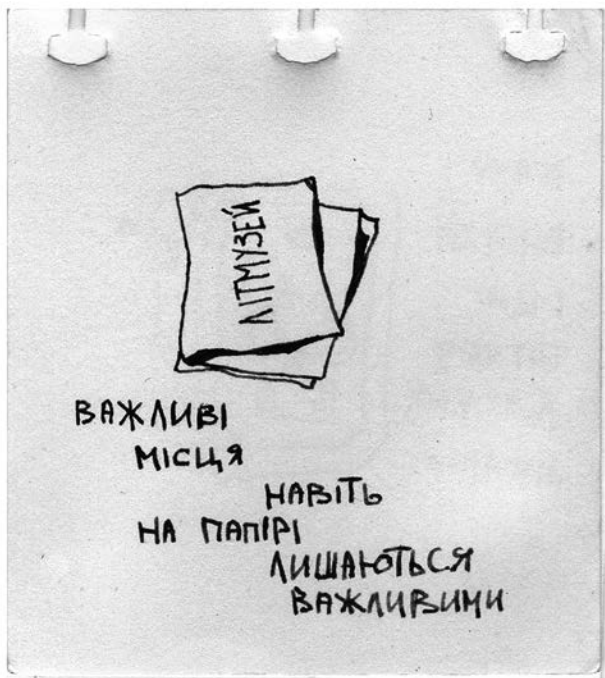 ЛІТМУЗЕЙ
ВАЖЛИВІ
МІСЦЯ
НАВІТЬ
НА ПАПІРІ
ЛИШАЮТЬСЯ
ВАЖЛИВИМИ